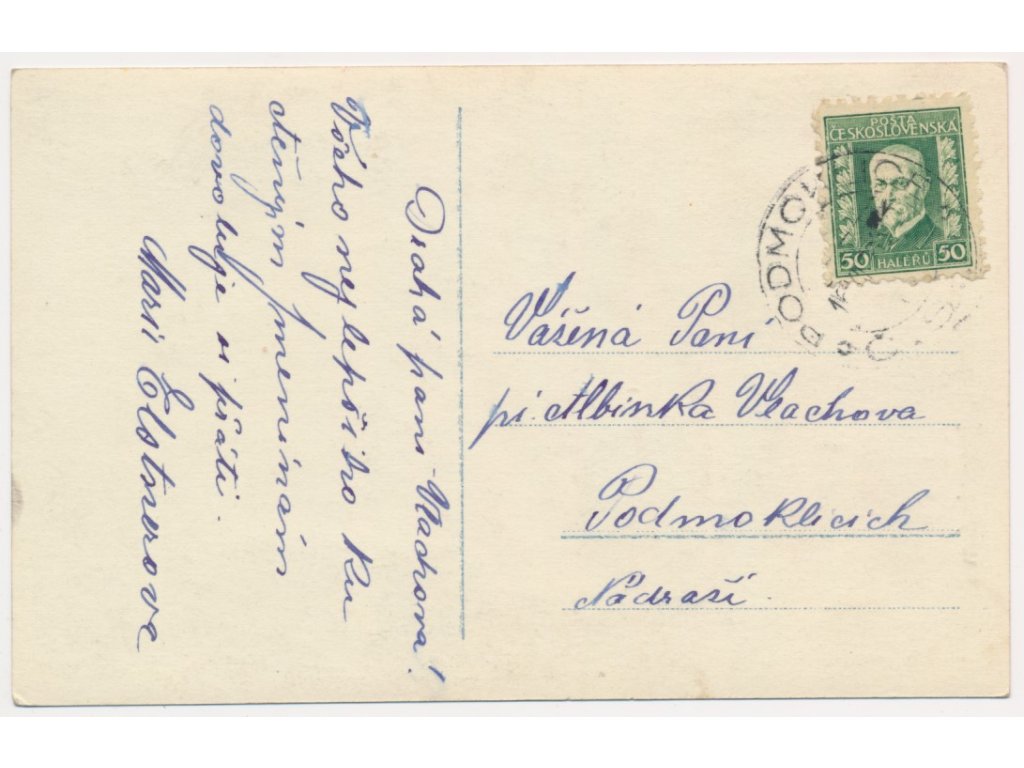 Drahá paní Vlachova!
Všeho nejlepšího ku
ctěným jmeninám
dovoluje si přáti.
Marii Elsnerova
POSTA
ČESKOSLOVENSKÁ
50 HALÉŘŮ 50
PODMOK
Vážená Paní
pí. Albinka Vlachova
Podmoklicich
Nádraží.